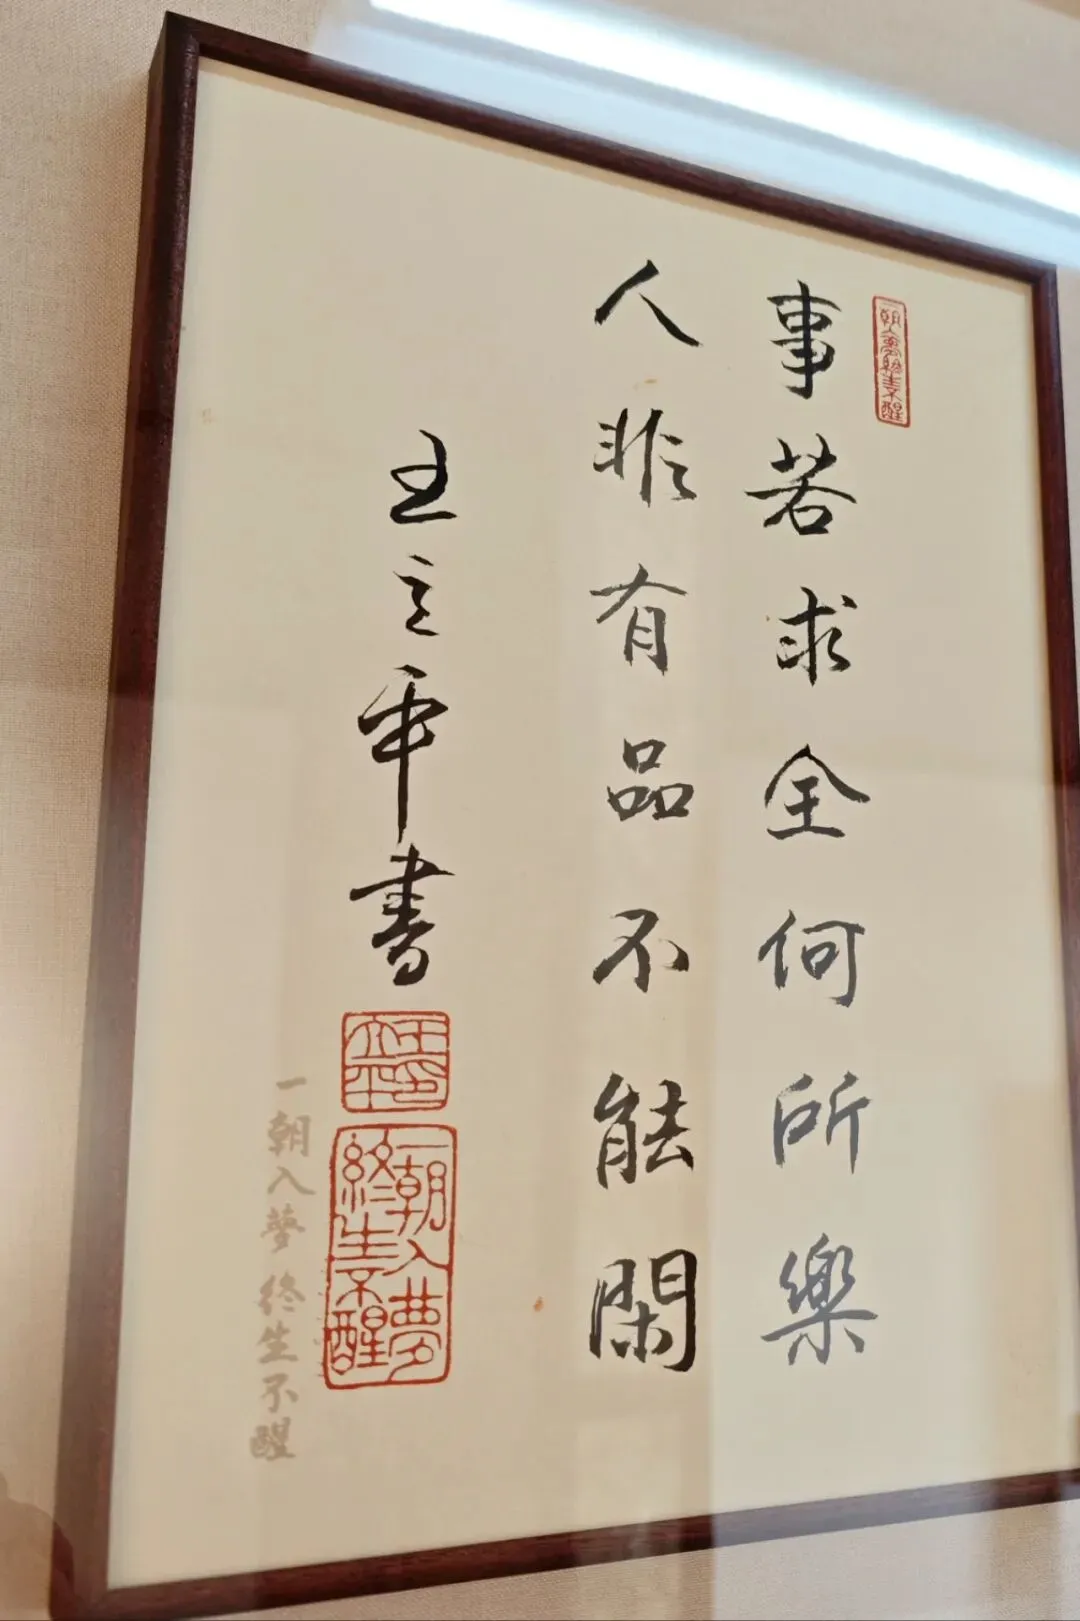 一朝入夢終生不醒
事若求全何所樂
人非有品不能閑
王立平書
王立平印
一朝入夢
終生不醒
一朝入夢 終生不醒